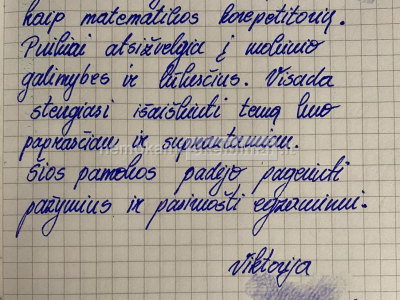 kaip matematikos korepetitorių.
Puikiai atsižvelgia į mokinio
galimybes ir lūkesčius. Visada
stengiasi išaiškinti temą kuo
paprasčiau ir suprantamiau.
Šios pamokos padėjo pagerinti
pažymius ir pasiruošti egzaminui.
Viktorija